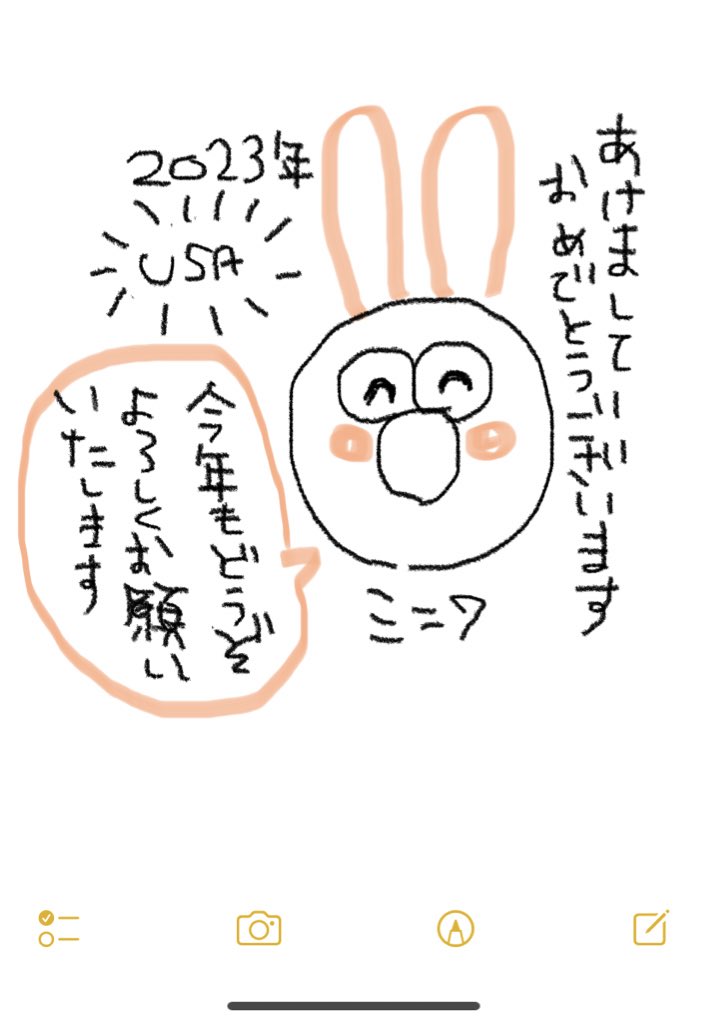 あけまして
おめでとうございます
2023年
USA
今年もどうぞ
よろしくお願い
いたします
ミニワ